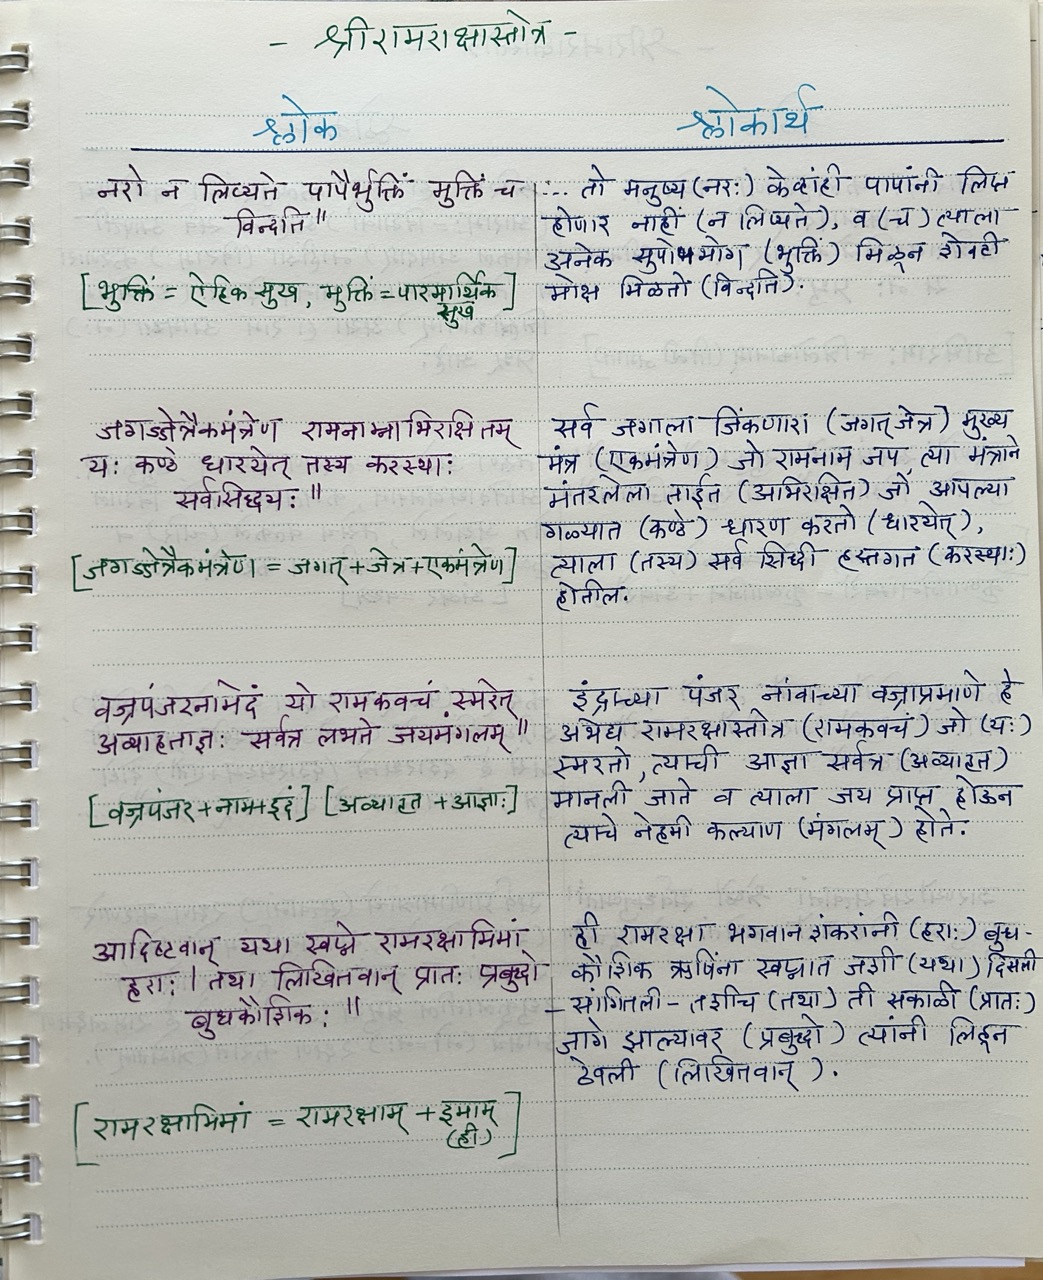 - श्रीरामराक्षास्तोत्र -
श्लोक
श्लोकार्थ
नरो न लिप्यते पापैर्भुक्तिं मुक्तिं च
विन्दति॥
[भुक्तिं = ऐहिक सुख, मुक्तिं = पारमार्थिक]
सुख
... तो मनुष्य (नरः) केव्हांही पापांनी लिप्त
होणार नाहीं (न लिप्यते), व (च) त्याला
अनेक सुपोषभोग (भुक्तिं) मिळून शेवटी
मोक्ष मिळतो (विन्दति).
जगज्जेत्रैकमंत्रेण रामनाम्नाभिरक्षितम्
यः कण्ठे धारयेत् तस्य करस्थाः
सर्वसिद्धयः॥
[जगज्जेत्रैकमंत्रेण = जगत् + जेत्र + एकमंत्रेण]
सर्व जगाला जिंकणारा (जगत् जेत्र) मुख्य
मंत्र (एकमंत्रेण) जो रामनाम जप, त्या मंत्राने
मंतरलेला ताईत (अभिरक्षित) जो आपल्या
गळ्यात (कण्ठे) धारण करतो (धारयेत्),
त्याला (तस्य) सर्व सिध्दी हस्तगत (करस्थाः)
होतील.
वज्रपंजरनामेदं यो रामकवचं स्मरेत्
अव्याहताज्ञः सर्वत्र लभते जयमंगलम्॥
[वज्रपंजर + नाम + इदं] [अव्याहत + आज्ञाः]
इंद्राच्या पंजर नांवाच्या वज्राप्रमाणे हे
अभेद्य रामरक्षास्तोत्र (रामकवचं) जो (यः)
स्मरतो, त्याची आज्ञा सर्वत्र (अव्याहत)
मानली जाते व त्याला जय प्राप्त होऊन
त्याचे नेहमी कल्याण (मंगलम्) होते.
आदिष्टवान् यथा स्वप्ने रामरक्षामिमां
हराः। तथा लिखितवान् प्रातः प्रबुध्दो
बुधकौशिकः॥
[रामरक्षामिमां = रामरक्षाम् + इमाम्]
(ही)
ही रामरक्षा भगवान शंकरांनी (हराः) बुध-
कौशिक ऋषिंना स्वप्नात जशी (यथा) दिसली
- सांगितली - तशीच (तथा) ती सकाळी (प्रातः)
जागे झाल्यावर (प्रबुध्दो) त्यांनी लिहून
ठेवली (लिखितवान्).